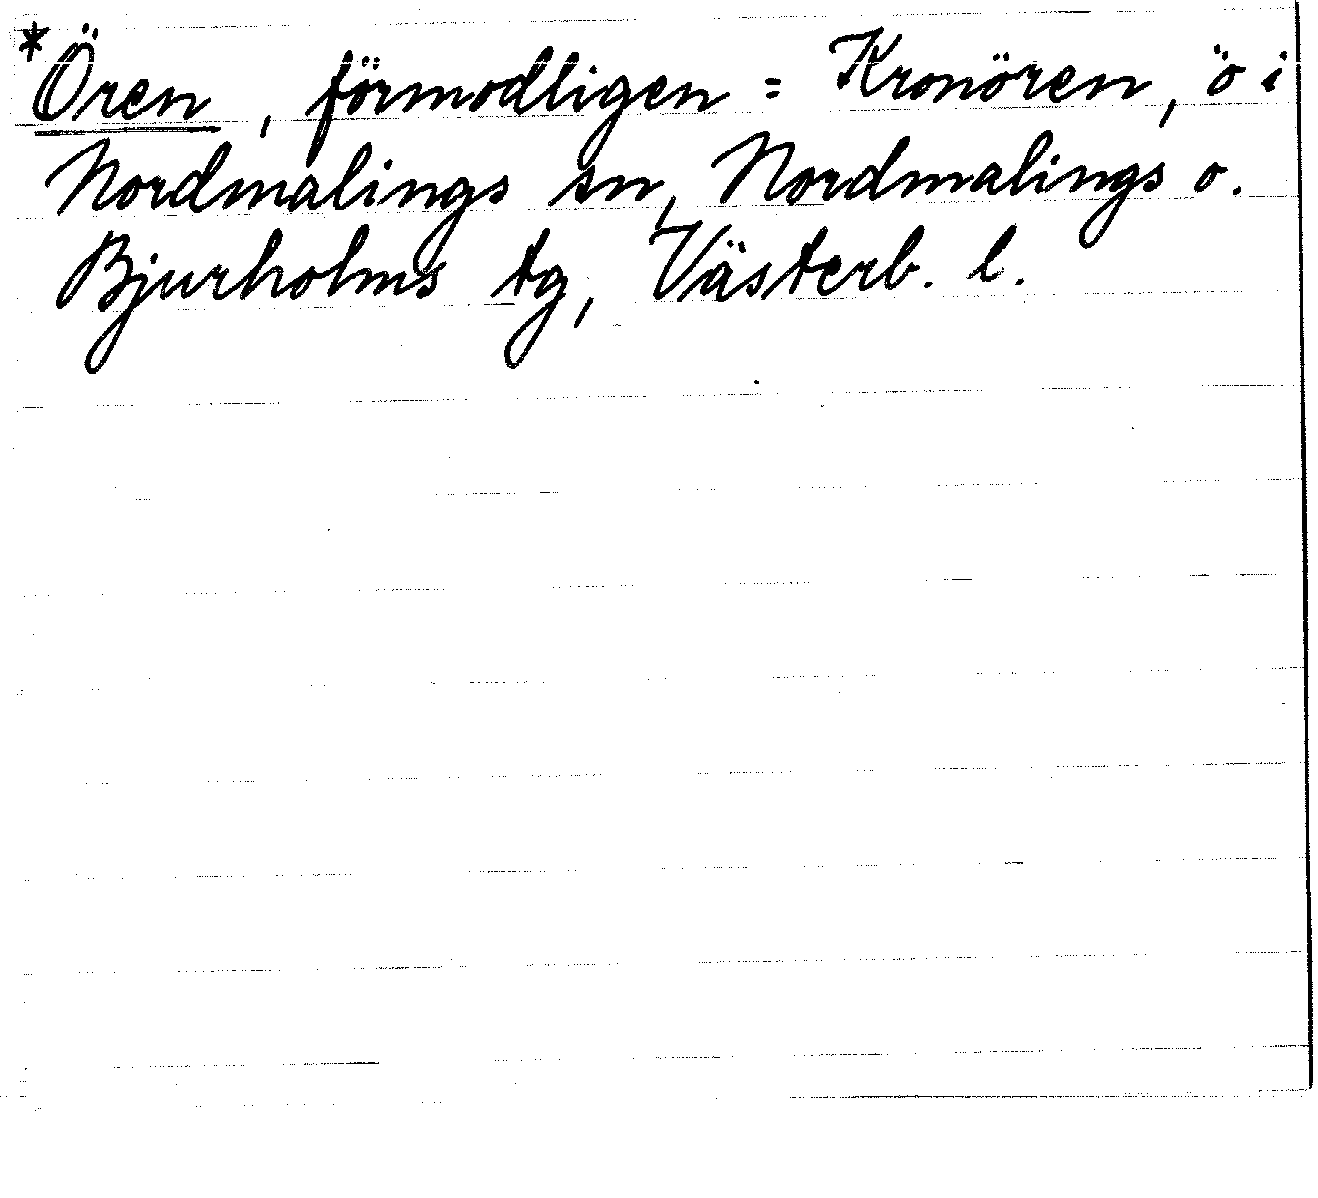 *Ören, förmodligen = Kronören, ö i
Nordmalings sn, Nordmalings o.
Bjurholms tg, Västerb. l.